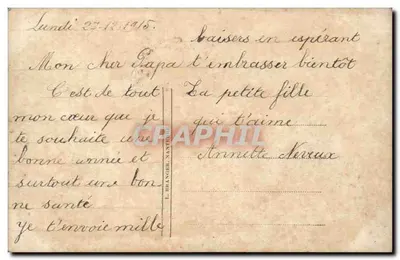 Lundi 27-12-1915.
Mon cher Papa
C'est de tout
mon cœur que je
te souhaite une
bonne année et
surtout une bon-
ne santé
Je t'envoie mille
baisers en espérant
t'embrasser bientôt
Ta petite fille
qui t'aime
Annette Neveux
CPAPHIL